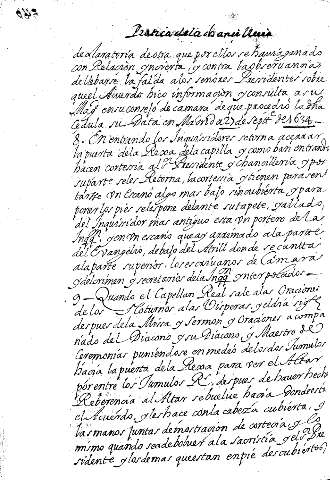 Practica de la chancilleria
declaratoria de otra que por ellos se havia ganado
con Relacion y noperta, y contra la observancia
de llebarse la falda a los señores Presidentes sobre
que el Acuerdo hico informacion y consulta a su
Magd en su consejo de camara de que procedio la dha
cedula su Data en Madrid a 27 de septre de 1634
8. En entrando los Inquisidores se torna a cerrar
la puerta de la Rexa de la capilla y como ban entrando
hacen cortesia al Sr Presidente y chancilleria, y por
su parte se les Retorna, la cortesia y tienen para sen-
tarse un Escaño algo mas bajo sin cubierta, y para
poner los pies se les pone delante su tapete, y al lado
del Inquisidor mas antiguo esta un portero de la
Inqqn, y en un escaño que ay arrimado a la parte
del Evangelio, debajo del Atril donde se canta
a la parte superior, los escrivanos de Camaras
y del crimen y secretarios de la Inqqn interpolados
9. Quando el Capellan Real sale a las Oraciones
de los Nocturnos a las Visperas, y el dia sigte
despues de la Missa y Sermon y Oraciones acompa-
ñado del Diacono y su Diacono, y Maestro de
Ceremonias puniendose en medio de los dos Tumulos
hacia la puerta de la Rexa para ver el Altar
por entre los Tumulos Rs, despues de haver hecho
Reberencia al Altar se buelve hacia donde esta
el Acuerdo, y les hace con la cabeza cubierta, y
las manos juntas demostracion de cortesia y lo
mismo quando se a de bolver a la sacristia y el Sr Pre-
sidente y los demas que estan en pie descubiertos